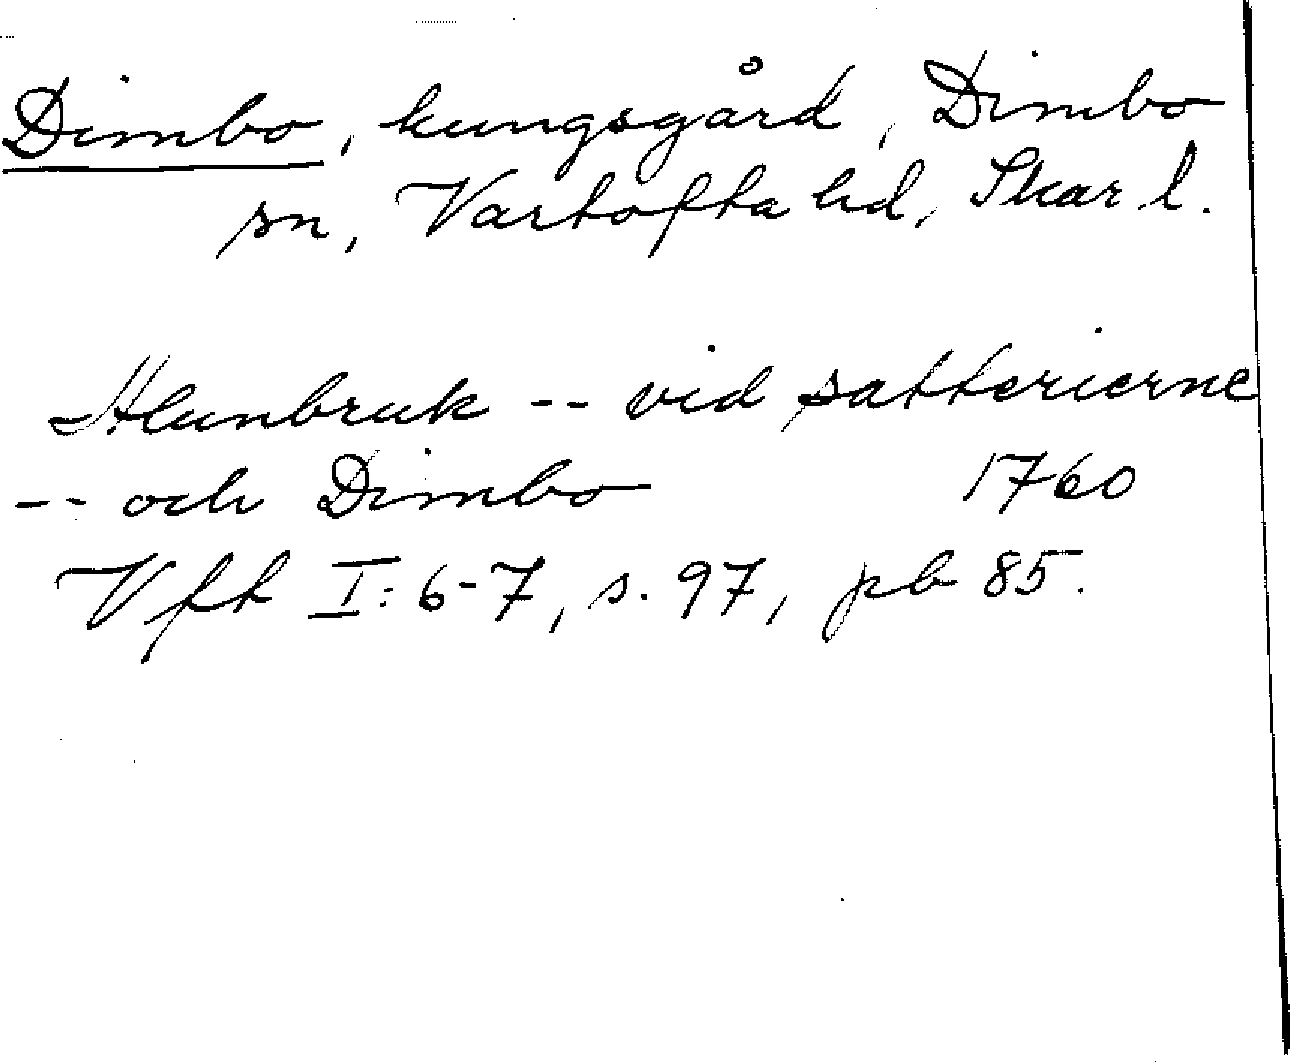 Dimbo, kungsgård, Dimbo
sn, Vartofta hd, Skar. l.
Humbruk -- vid sätterierne
-- och Dimbo 1760
Vft I: 6-7, s. 97, pb 85.